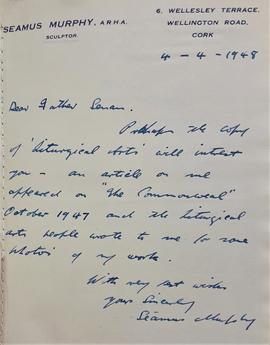 SEAMUS MURPHY, A.R.H.A.
SCULPTOR.
6, WELLESLEY TERRACE,
WELLINGTON ROAD,
CORK
4 – 4 – 1948
Dear Father Senan.
Perhaps the copy
of 'Liturgical Arts' will interest
you – an article on me
appeared in "The Commonweal"
October 1947 and the liturgical
arts people wrote to me for some
photos of my work.
With very best wishes
yours sincerely
Séamus Murphy